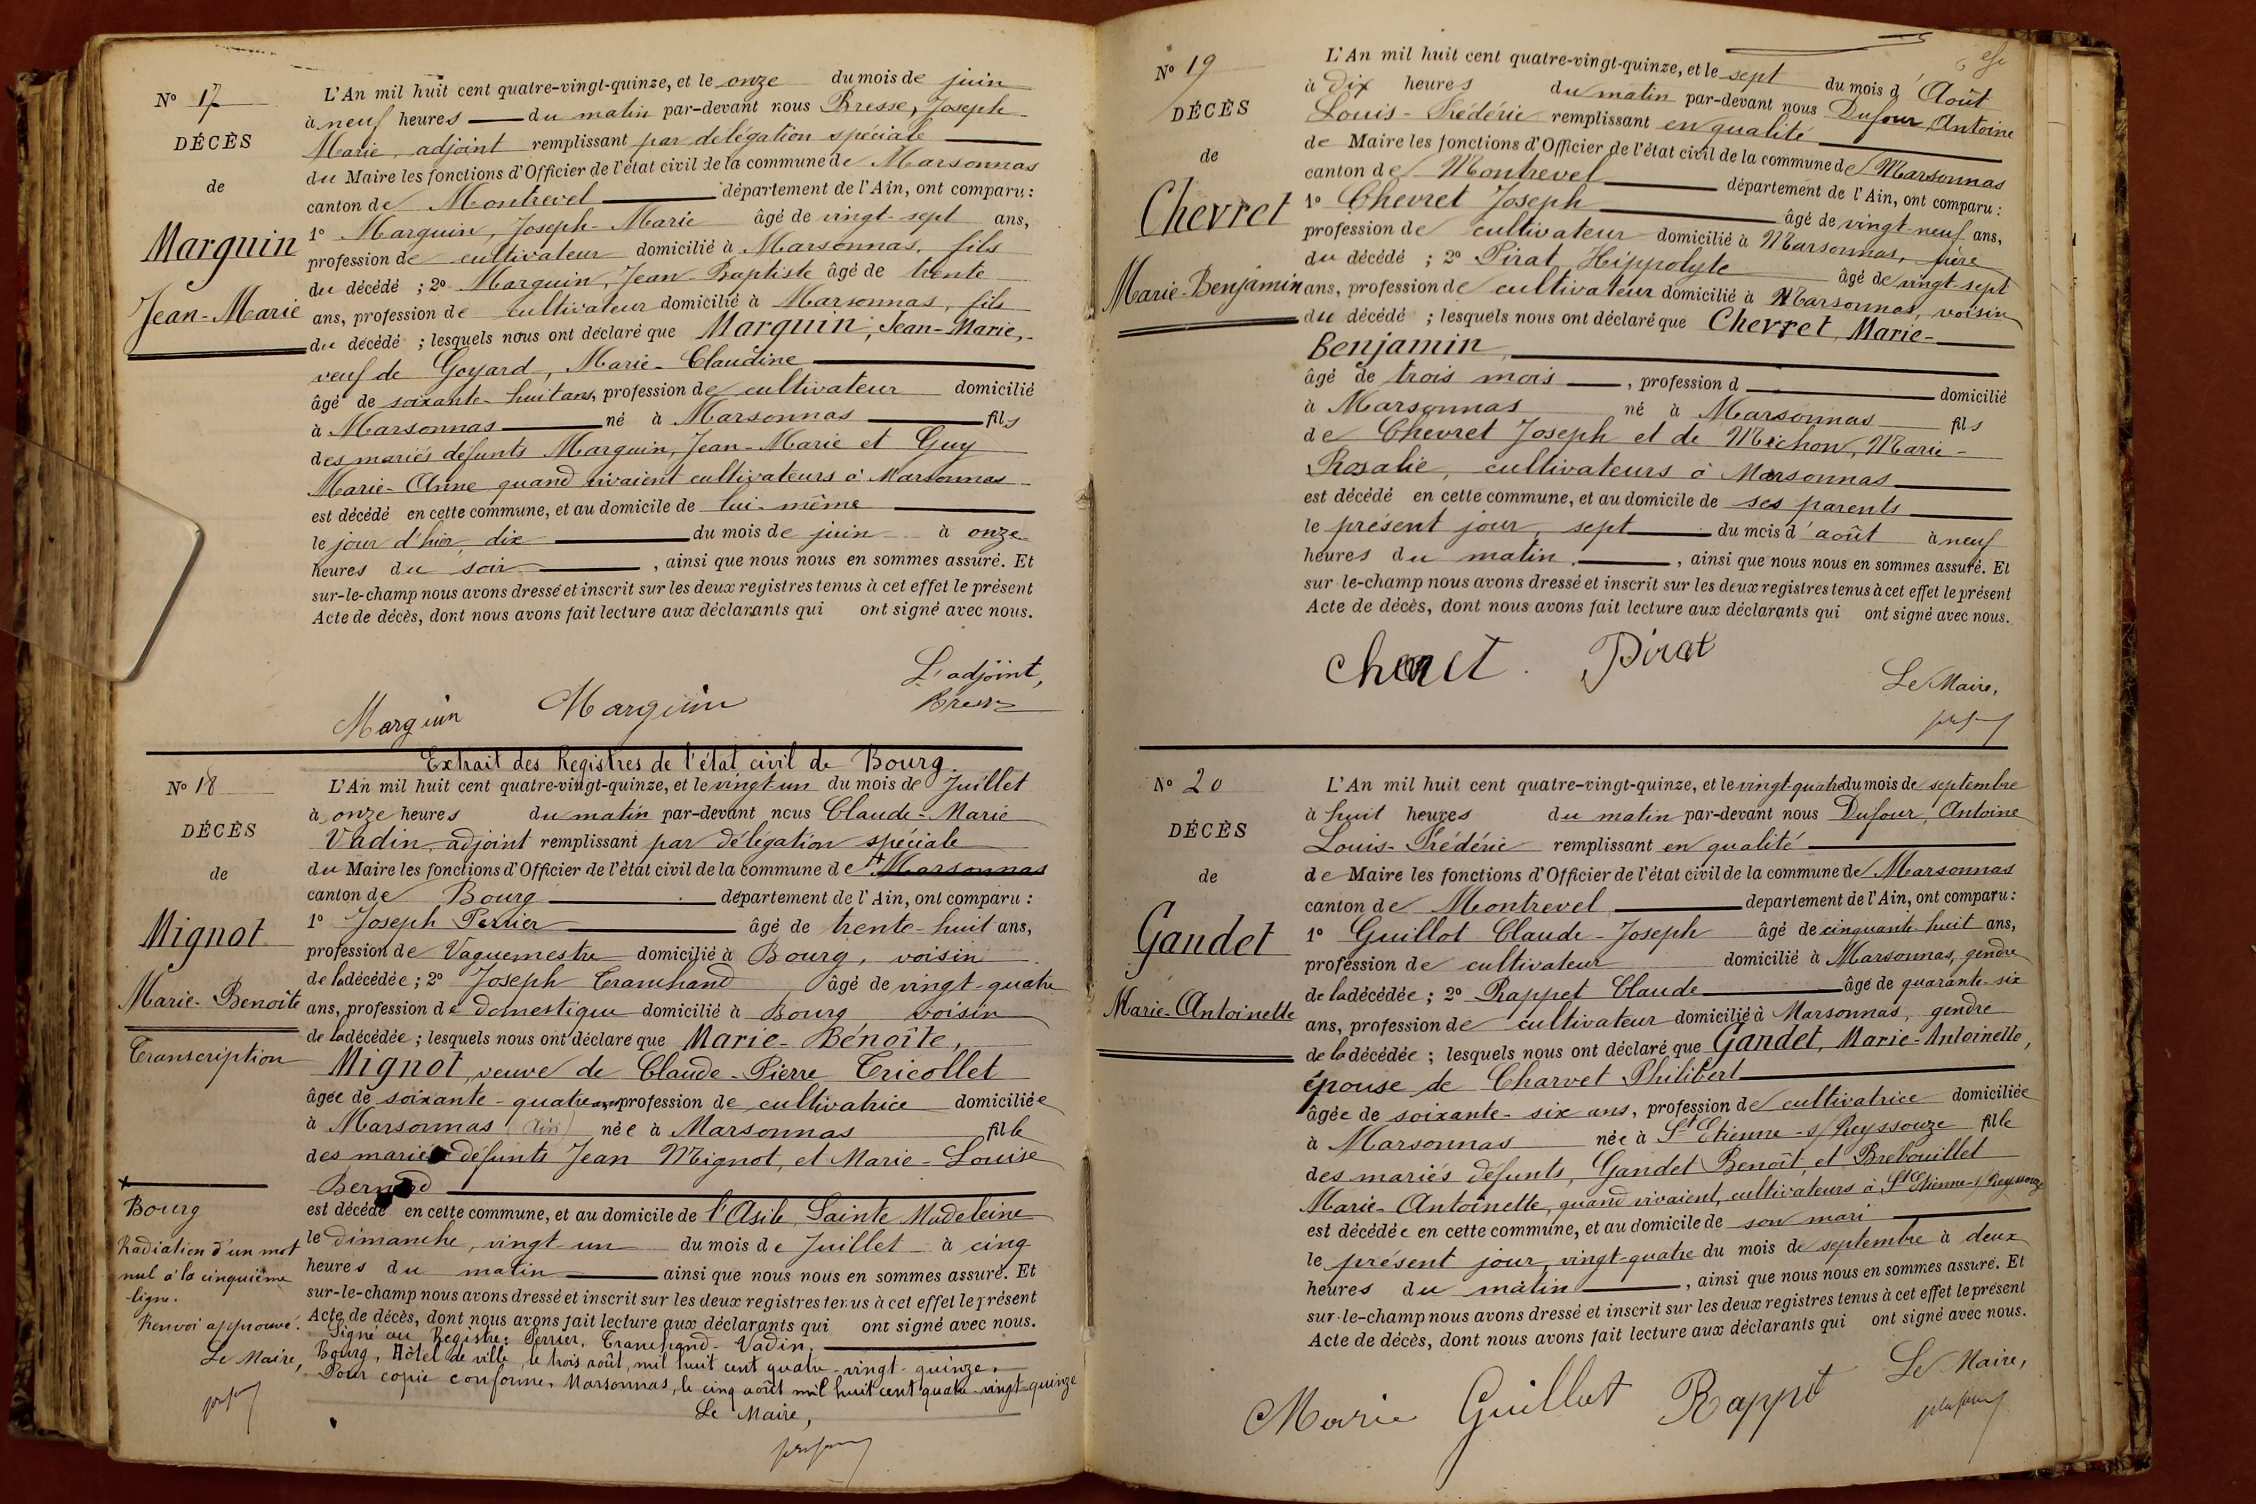 N° 17
DÉCÈS
de
Marguin
Jean-Marie
L'An mil huit cent quatre-vingt-quinze, et le onze du mois de juin
à neuf heures du matin par-devant nous Bresse, Joseph
Marie, adjoint remplissant par délégation spéciale
du Maire les fonctions d'Officier de l'état civil de la commune de Marsonnas
canton de Montrevel département de l'Ain, ont comparu :
1° Marguin, Joseph-Marie âgé de vingt-sept ans,
profession de cultivateur domicilié à Marsonnas, fils
du décédé ; 2° Marguin, Jean Baptiste âgé de trente
ans, profession de cultivateur domicilié à Marsonnas, fils
du décédé ; lesquels nous ont déclaré que Marguin, Jean-Marie,
veuf de Goyard, Marie-Claudine
âgé de soixante-huit ans, profession de cultivateur domicilié
à Marsonnas né à Marsonnas fils
des mariés défunts Marguin, Jean-Marie et Guy
Marie-Anne quand vivaient cultivateurs à Marsonnas
est décédé en cette commune, et au domicile de lui-même
le jour d'hier, dix du mois de juin à onze
heures du soir, ainsi que nous nous en sommes assuré. Et
sur-le-champ nous avons dressé et inscrit sur les deux registres tenus à cet effet le présent
Acte de décès, dont nous avons fait lecture aux déclarants qui ont signé avec nous.
L'adjoint,
Marguin Marguin Bresse
Extrait des Registres de l'état civil de Bourg.
N° 18
DÉCÈS
de
Mignot
Marie-Benoîte
Transcription
L'An mil huit cent quatre-vingt-quinze, et le vingt-un du mois de Juillet
à onze heures du matin par-devant nous Claude-Marie
Vadin, adjoint remplissant par délégation spéciale
du Maire les fonctions d'Officier de l'état civil de la commune de Marsonnas
canton de Bourg département de l'Ain, ont comparu :
1° Joseph Perrier âgé de trente-huit ans,
profession de Vaguemestre domicilié à Bourg, voisin
de la décédée ; 2° Joseph Tranchand âgé de vingt-quatre
ans, profession de domestique domicilié à Bourg voisin
de la décédée ; lesquels nous ont déclaré que Marie-Bénoîte,
Mignot, veuve de Claude-Pierre Tricollet
âgée de soixante-quatre ans profession de cultivatrice domiciliée
à Marsonnas née à Marsonnas fille
des mariés défunts Jean Mignot, et Marie-Louise
Bernard
est décédé en cette commune, et au domicile de l'Asile Sainte Madeleine
le dimanche, vingt-un du mois de Juillet à cinq
heures du matin ainsi que nous nous en sommes assuré. Et
sur-le-champ nous avons dressé et inscrit sur les deux registres tenus à cet effet le présent
Acte de décès, dont nous avons fait lecture aux déclarants qui ont signé avec nous.
Signé au Registre : Perrier, Tranchand - Vadin.
Bourg, Hôtel de ville, le trois août, mil huit cent quatre-vingt-quinze.
Pour copie conforme, Marsonnas, le cinq août mil huit cent quatre-vingt-quinze
Le Maire,
Bourg
Radiation d'un mot
nul à la cinquième
ligne.
Renvoi approuvé.
Le Maire,
N° 19
DÉCÈS
de
Chevret
Marie-Benjamin
L'An mil huit cent quatre-vingt-quinze, et le sept du mois d'Août
à dix heures du matin par-devant nous Dufour, Antoine
Louis-Frédéric remplissant en qualité
de Maire les fonctions d'Officier de l'état civil de la commune de Marsonnas
canton de Montrevel département de l'Ain, ont comparu :
1° Chevret Joseph âgé de vingt-neuf ans,
profession de cultivateur domicilié à Marsonnas, père
du décédé ; 2° Pirat Hippolyte âgé de vingt-sept
ans, profession de cultivateur domicilié à Marsonnas, voisin
du décédé ; lesquels nous ont déclaré que Chevret, Marie-
Benjamin,
âgé de trois mois, profession d domicilié
à Marsonnas né à Marsonnas fils
de Chevret Joseph et de Michon, Marie-
Rosalie, cultivateurs à Marsonnas
est décédé en cette commune, et au domicile de ses parents
le présent jour, sept du mois d'août à neuf
heures du matin, ainsi que nous nous en sommes assuré. Et
sur-le-champ nous avons dressé et inscrit sur les deux registres tenus à cet effet le présent
Acte de décès, dont nous avons fait lecture aux déclarants qui ont signé avec nous.
Chevret. Pirat
Le Maire,
N° 20
DÉCÈS
de
Gandet
Marie-Antoinette
L'An mil huit cent quatre-vingt-quinze, et le vingt-quatre du mois de septembre
à huit heures du matin par-devant nous Dufour, Antoine
Louis-Frédéric remplissant en qualité
de Maire les fonctions d'Officier de l'état civil de la commune de Marsonnas
canton de Montrevel département de l'Ain, ont comparu :
1° Guillot Claude-Joseph âgé de cinquante-huit ans,
profession de cultivateur domicilié à Marsonnas, gendre
de la décédée ; 2° Rappet Claude âgé de quarante-six
ans, profession de cultivateur domicilié à Marsonnas, gendre
de la décédée ; lesquels nous ont déclaré que Gandet, Marie-Antoinette,
épouse de Charvet Philibert
âgée de soixante-six ans, profession de cultivatrice domiciliée
à Marsonnas née à St Etienne-s/Reyssouze fille
des mariés défunts, Gandet Benoît, et Brebouillet
Marie-Antoinette, quand vivaient, cultivateurs à St Etienne-s/Reyssouze
est décédée en cette commune, et au domicile de son mari
le présent jour, vingt-quatre du mois de septembre à deux
heures du matin, ainsi que nous nous en sommes assuré. Et
sur-le-champ nous avons dressé et inscrit sur les deux registres tenus à cet effet le présent
Acte de décès, dont nous avons fait lecture aux déclarants qui ont signé avec nous.
Le Maire,
Marie Guillot Rappet